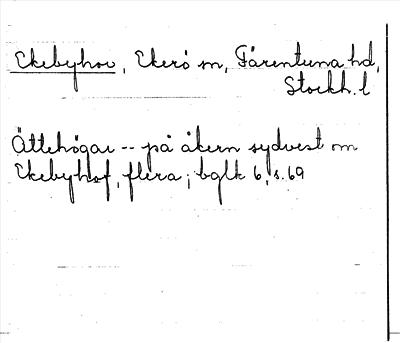 Ekebyhov, Ekerö sn, Färentuna hd,
Stockh. l
Ättehögar -- på åkern sydvest om
Ekebyhof, flera; bglk 6, s. 69